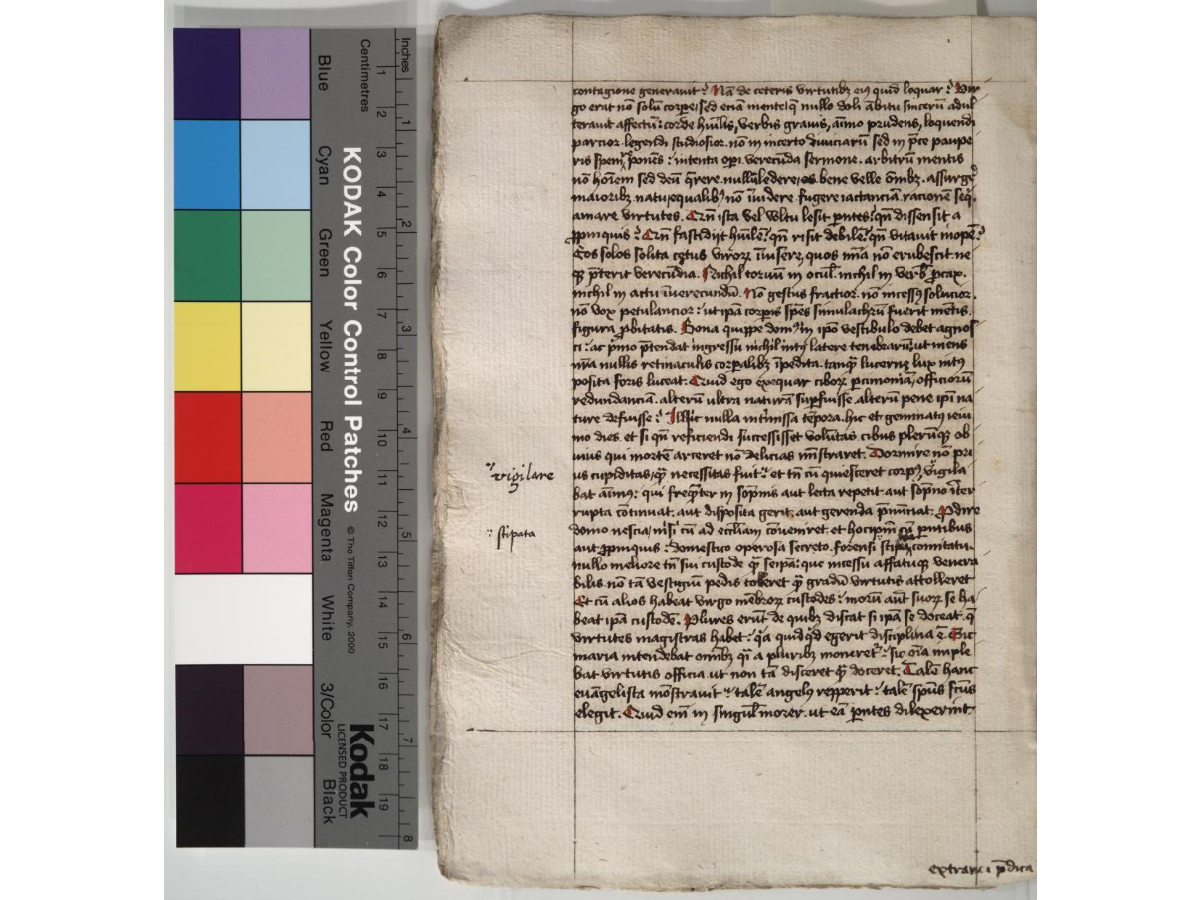 Blue
Cyan
Green
Yellow
Red
Magenta
White
3/Color
Black
Centimetres
Inches
KODAK Color Control Patches
© The Tiffen Company, 2000
Kodak
LICENSED PRODUCT
1 2 3 4 5 6 7 8 9 10 11 12 13 14 15 16 17 18 19
1 2 3 4 5 6 7 8
contagione generauit? Nā de ceteris virtutibꝫ eiꝰ quid loquar? Vir
go erat nō solū corpe, sed etiā mente, q̄ nullo doli ābitu sincerū adul
terauit affectū: corde hūilis, verbis grauis, aīmo prudens, loquendi
parcior. legendi studiosior. nō in incerto diuiciarū sed in p̄ce paupe
ris spem ponēs: intenta opi. verecūda sermone. arbitrū mentis
nō hoīem sed deū q̄rere. nullū ledere, bene velle oībꝫ. assurgē
maioribꝫ natu, equalibꝰ nō inuidere. fugere iactanciā. racionē seq̄.
amare virtutes. Qn̄ ista vel vltu lesit pn̄tes? qn̄ dissensit a
ꝓpinquis? Qn̄ fastidijt hūilē? qn̄ risit debilē? qn̄ vitauit inopē?
Eos solos solita cetus viroꝝ īuisere, quos mīa nō erubescit. ne
qꝫ p̄terit verecūdia. Nichil toruū in ocul. nichil in verb ꝓcax.
nichil in actu īuerecundū. Nō gestus fractior. nō incessꝰ solucior.
nō vox petulancior: ut ipā corpis spēs simulachrū fuerit mētis.
figura ꝓbitatis. Bona quippe domꝰ in ipō vestibulo debet agnos
ci: ac p̄mo p̄tendat ingressu nichil intꝰ latere tenebrarū: ut mens
nr̄a nullis retinaculis corpalibꝫ īpedita. tanqꝫ lucerne lux intꝰ
posita foris luceat. Quid ego exequar ciboꝝ pcimoniā, officiorū
redundanciā. alterū ultra naturā supfuisse. alterū pene ipī na
ture defuisse? Illic nulla int̄missa tēpora. hic et geminatꝰ ieiu
nio dies. et si qn̄ reficiendi successisset volūtas cibus plerūqꝫ ob
uius qui mortē arceret nō delicias mīstraret. Dormire nō pri
us cupiditas, q̄ necessitas fuit: et tn̄ cū quiesceret corpꝰ, vigila
bat aīmꝰ: qui freqn̄ter in sōpnis aut lecta repetit. aut sōpno īter
rupta cōtinuat. aut disposita gerit. aut gerenda p̄nūciat. Prodire
domo nescia, nisi cū ad eccliam cōueniret. et hoc ipm̄ cū pn̄tibus
aut ꝓpinquis: domestico operosa secreto. forensi stipata comitatu.
nullo meliore tn̄ sui custode q̄ seipā: que incessu affatuqꝫ venera
bilis. nō tā vestigiū pedis tolleret q̄ gradū virtutis attolleret
Et cū alios habeat virgo mēbroꝝ custodes: morū aūt suoꝝ se ha
beat ipā custodē. Plures erūt de quibꝫ discat si ipā se doceat. q̄
virtutes magistras habet: q̄a quidq̄d egerit disciplina ē. Sic
maria intendebat oībꝫ q̄ī a pluribꝫ moneret: sic oīa īmple
bat virtutis officia ut non tā disceret q̄ doceret. Talē hanc
euāgelista mōstrauit: talē angelꝰ repperit: talē spūs scūs
elegit. Quid eī in singul moror. ut eā pn̄tes dilexerint
vigilare
stipata